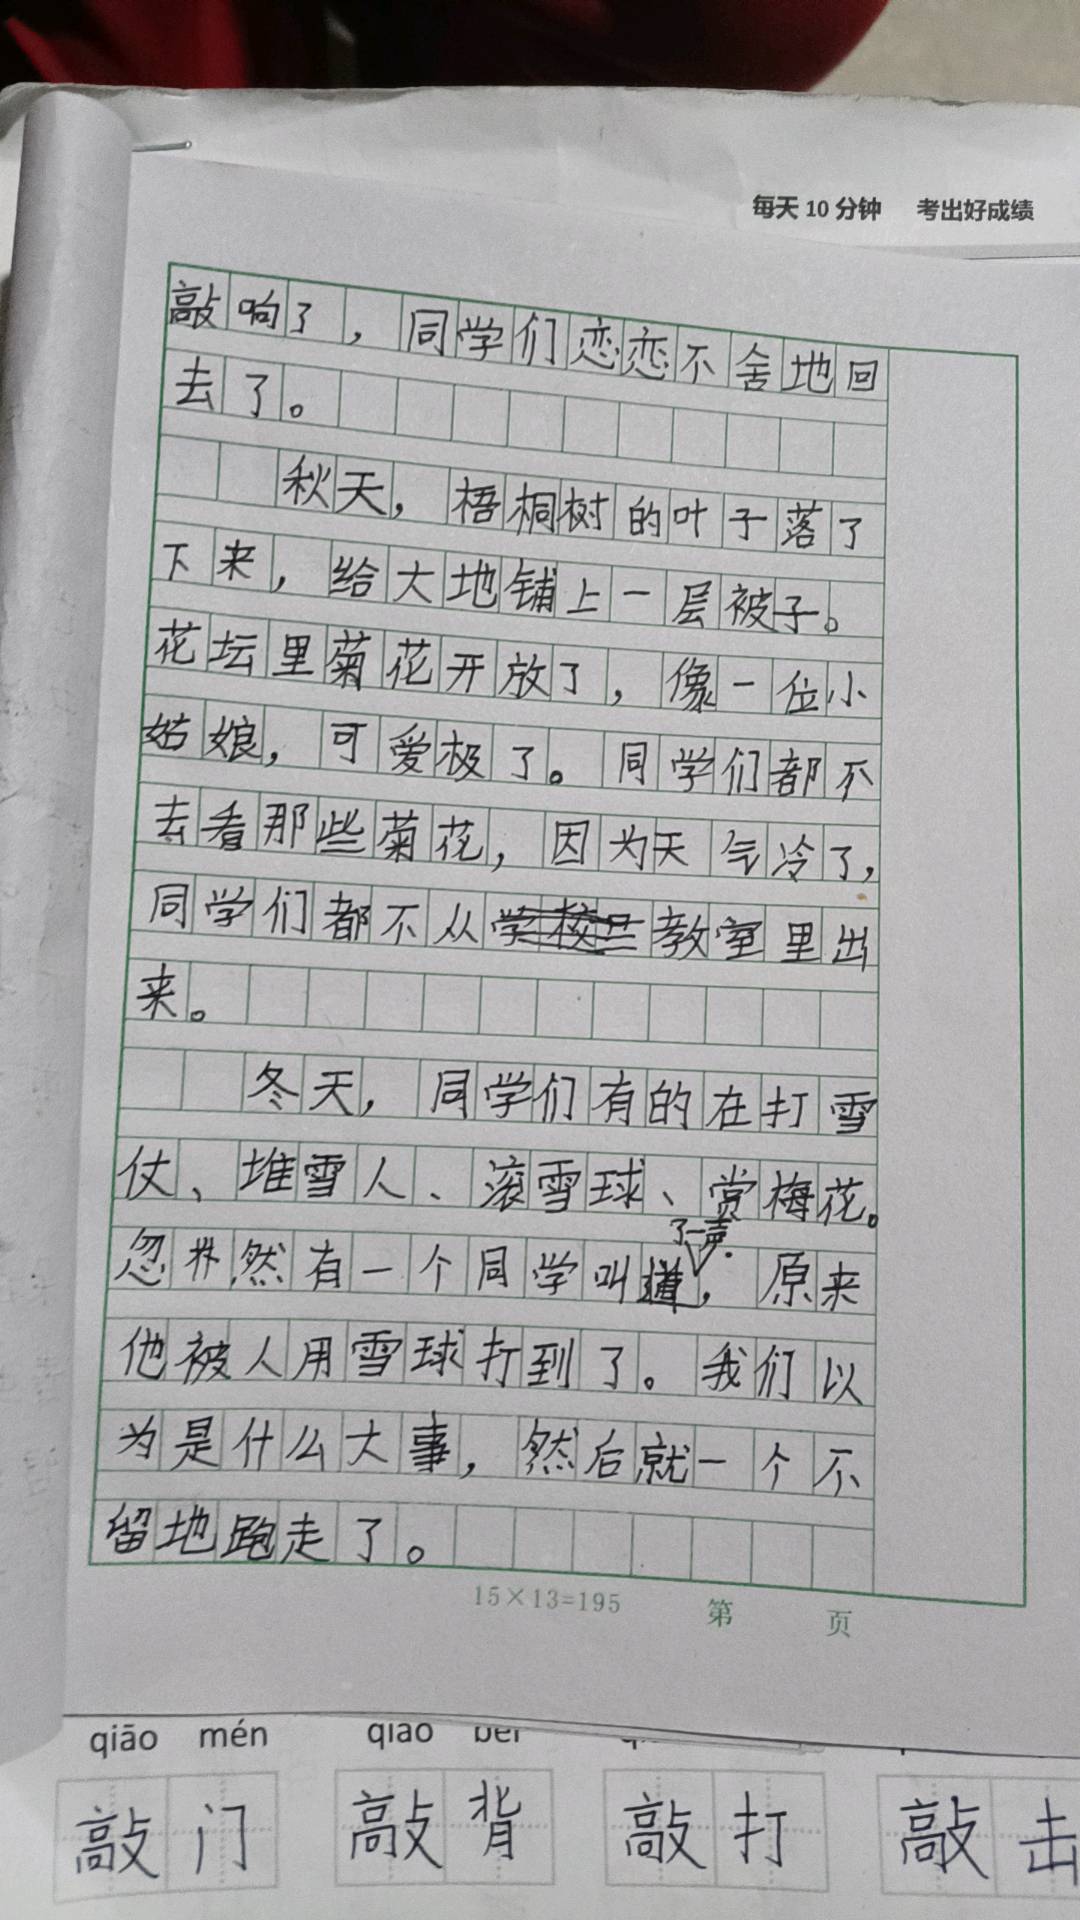 每天10分钟 考出好成绩
敲响了，同学们恋恋不舍地回
去了。
秋天，梧桐树的叶子落了
下来，给大地铺上一层被子。
花坛里菊花开放了，像一位小
姑娘，可爱极了。同学们都不
去看那些菊花，因为天气冷了，
同学们都不从教室里出
来。
冬天，同学们有的在打雪
仗、堆雪人、滚雪球、赏梅花。
了一声
忽然有一个同学叫道，原来
他被人用雪球打到了。我们以
为是什么大事，然后就一个不
留地跑走了。
15×13=195 第 页
qiāo mén qiāo bèi
敲门 敲背 敲打 敲击